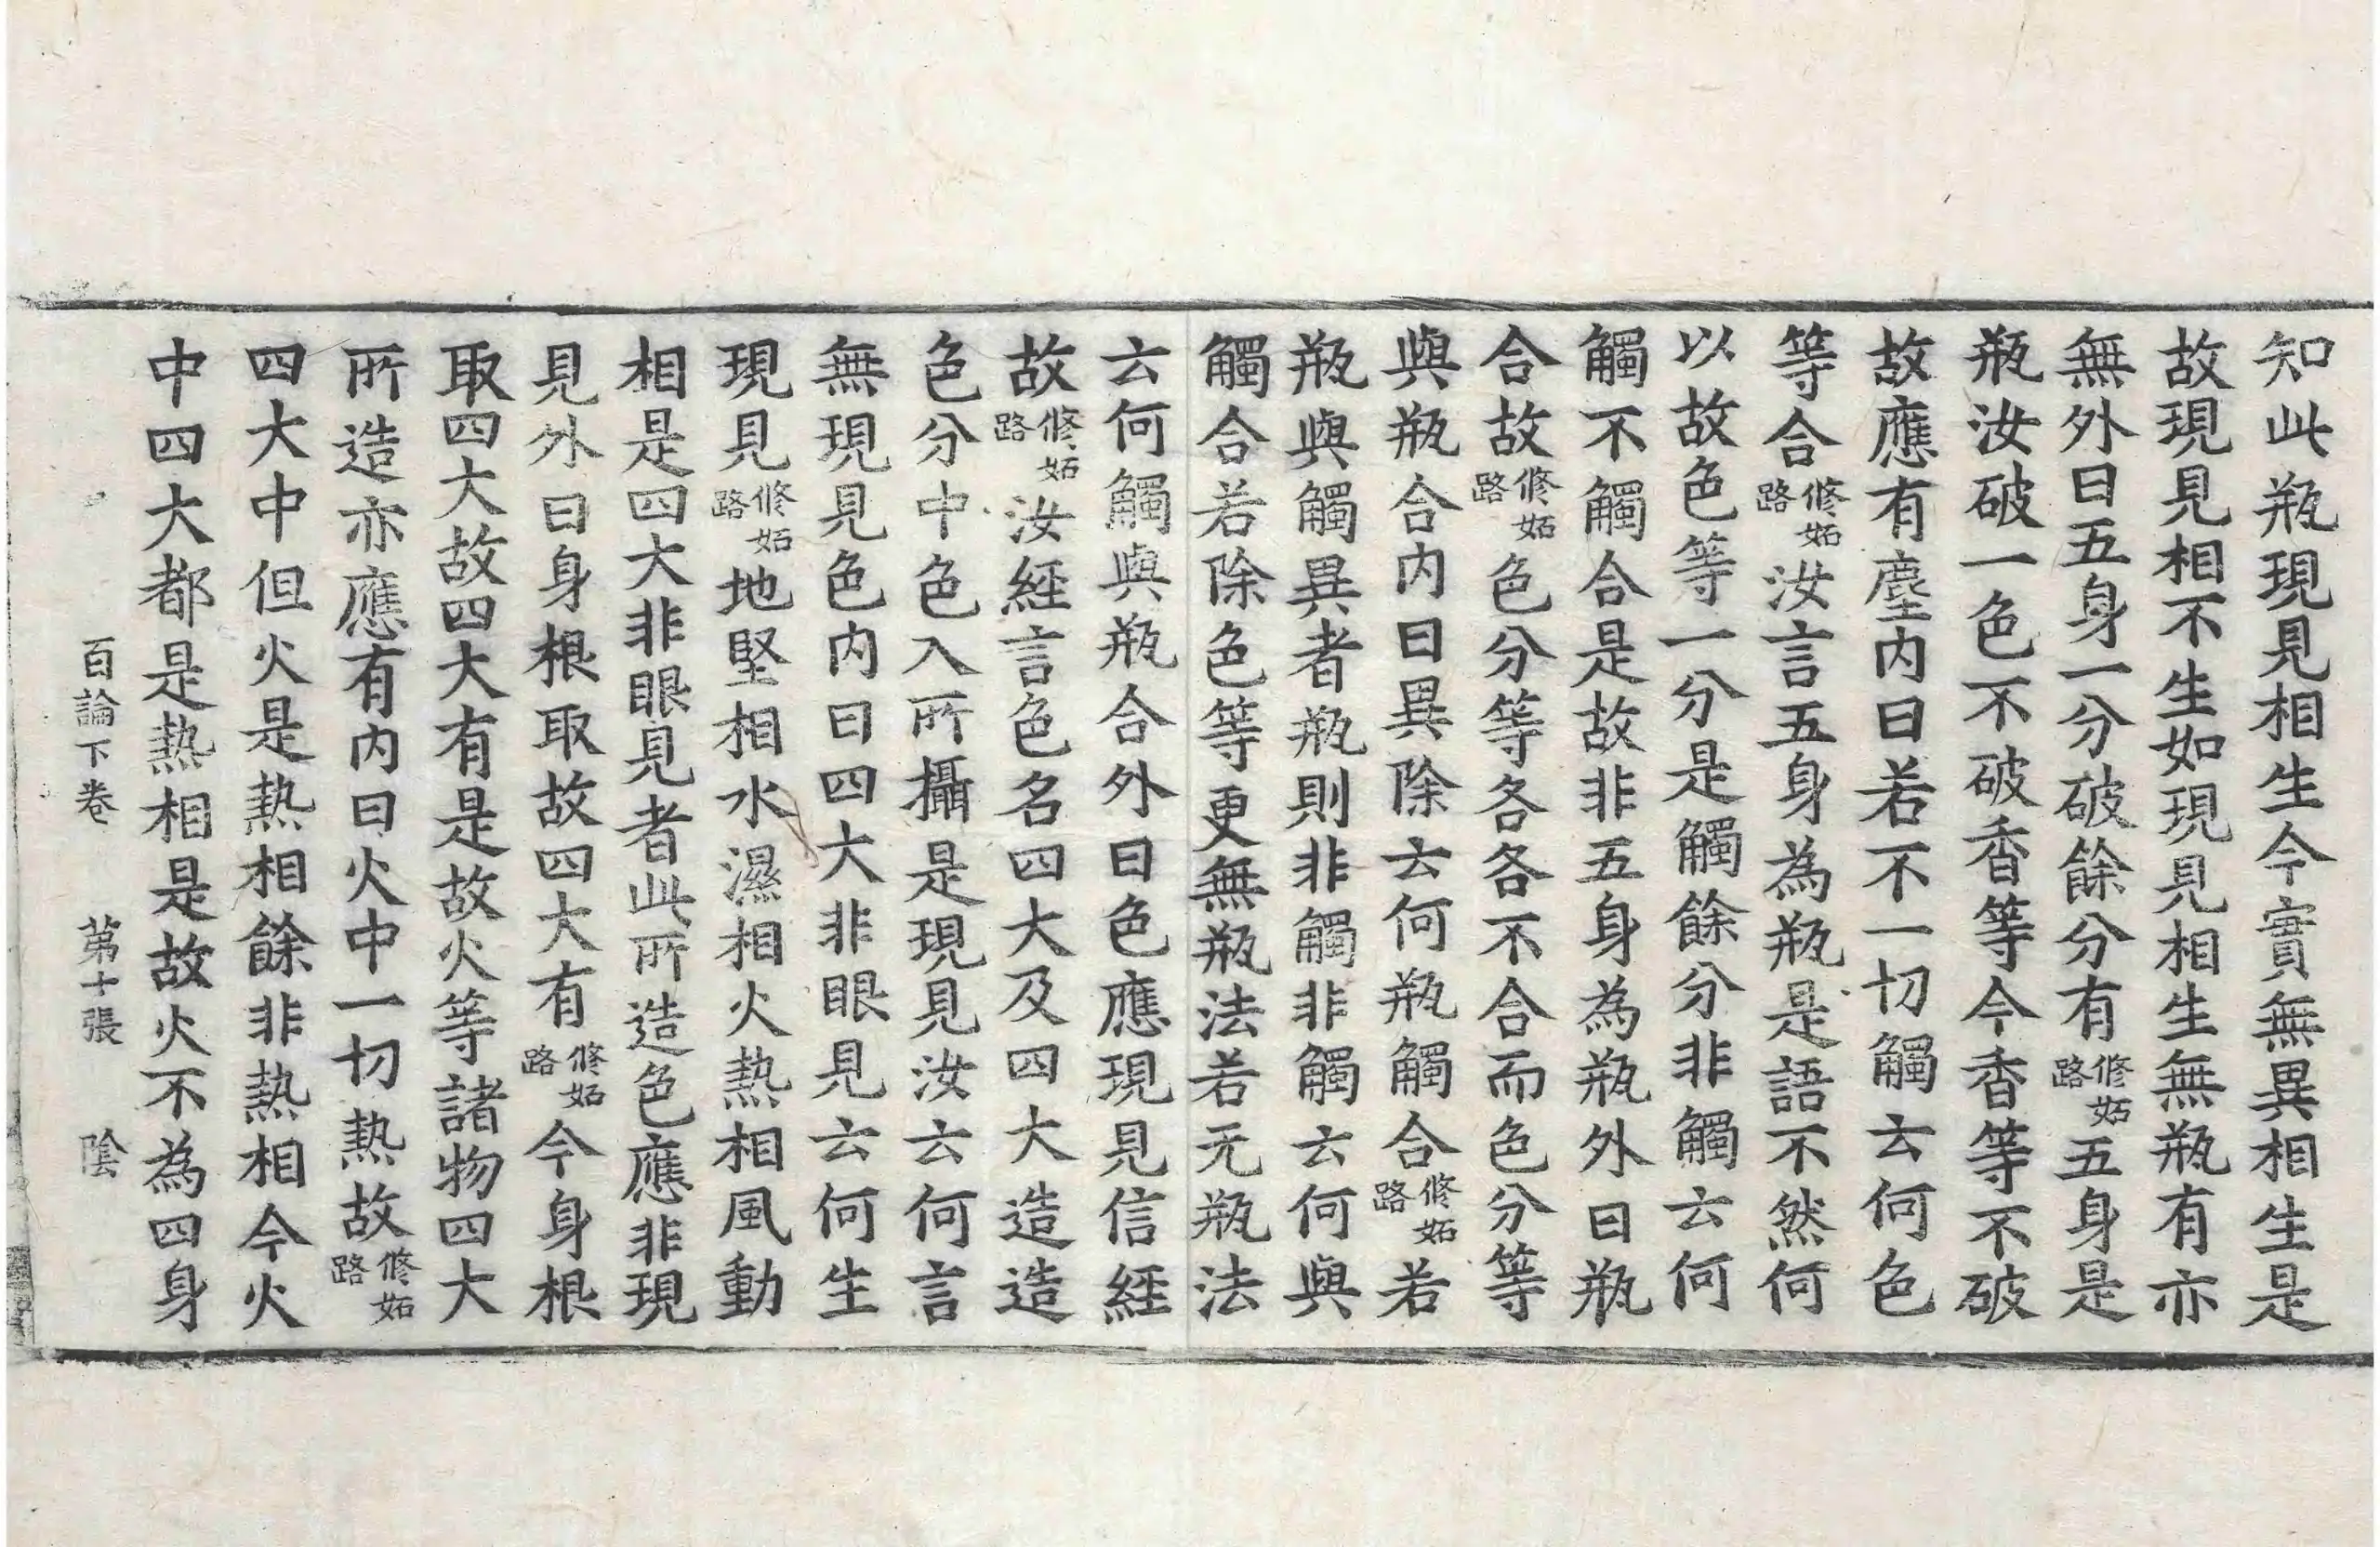 知此瓶現見相生今實無異相生是
故現見相不生如現見相生無瓶有亦
無外曰五身一分破餘分有修妬路五身是
瓶汝破一色不破香等今香等不破
故應有塵内曰若不一切觸云何色
等合修妬路汝言五身為瓶是語不然何
以故色等一分是觸餘分非觸云何
觸不觸合是故非五身為瓶外曰瓶
合故修妬路色分等各各不合而色分等
與瓶合内曰異除云何瓶觸合修妬路若
瓶與觸異者瓶則非觸非觸云何與
觸合若除色等更無瓶法若无瓶法
云何觸與瓶合外曰色應現見信經
故修妬路汝經言色名四大及四大造造
色分中色入所攝是現見汝云何言
無現見色内曰四大非眼見云何生
現見修妬路地堅相水濕相火熱相風動
相是四大非眼見者此所造色應非現
見外曰身根取故四大有修妬路今身根
取四大故四大有是故火等諸物四大
所造亦應有内曰火中一切熱故修妬路
四大中但火是熱相餘非熱相今火
中四大都是熱相是故火不為四身
百論下卷 第十張 陰